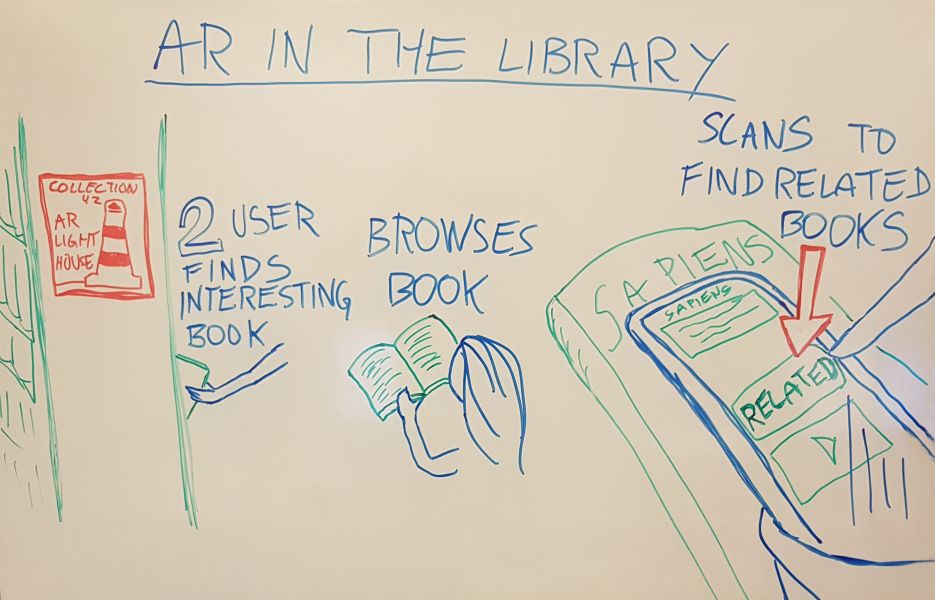 AR IN THE LIBRARY
COLLECTION
42
AR
LIGHT
HOUSE
2 USER
FINDS
INTERESTING
BOOK
BROWSES
BOOK
SCANS TO
FIND RELATED
BOOKS
SAPIENS
SAPIENS
RELATED